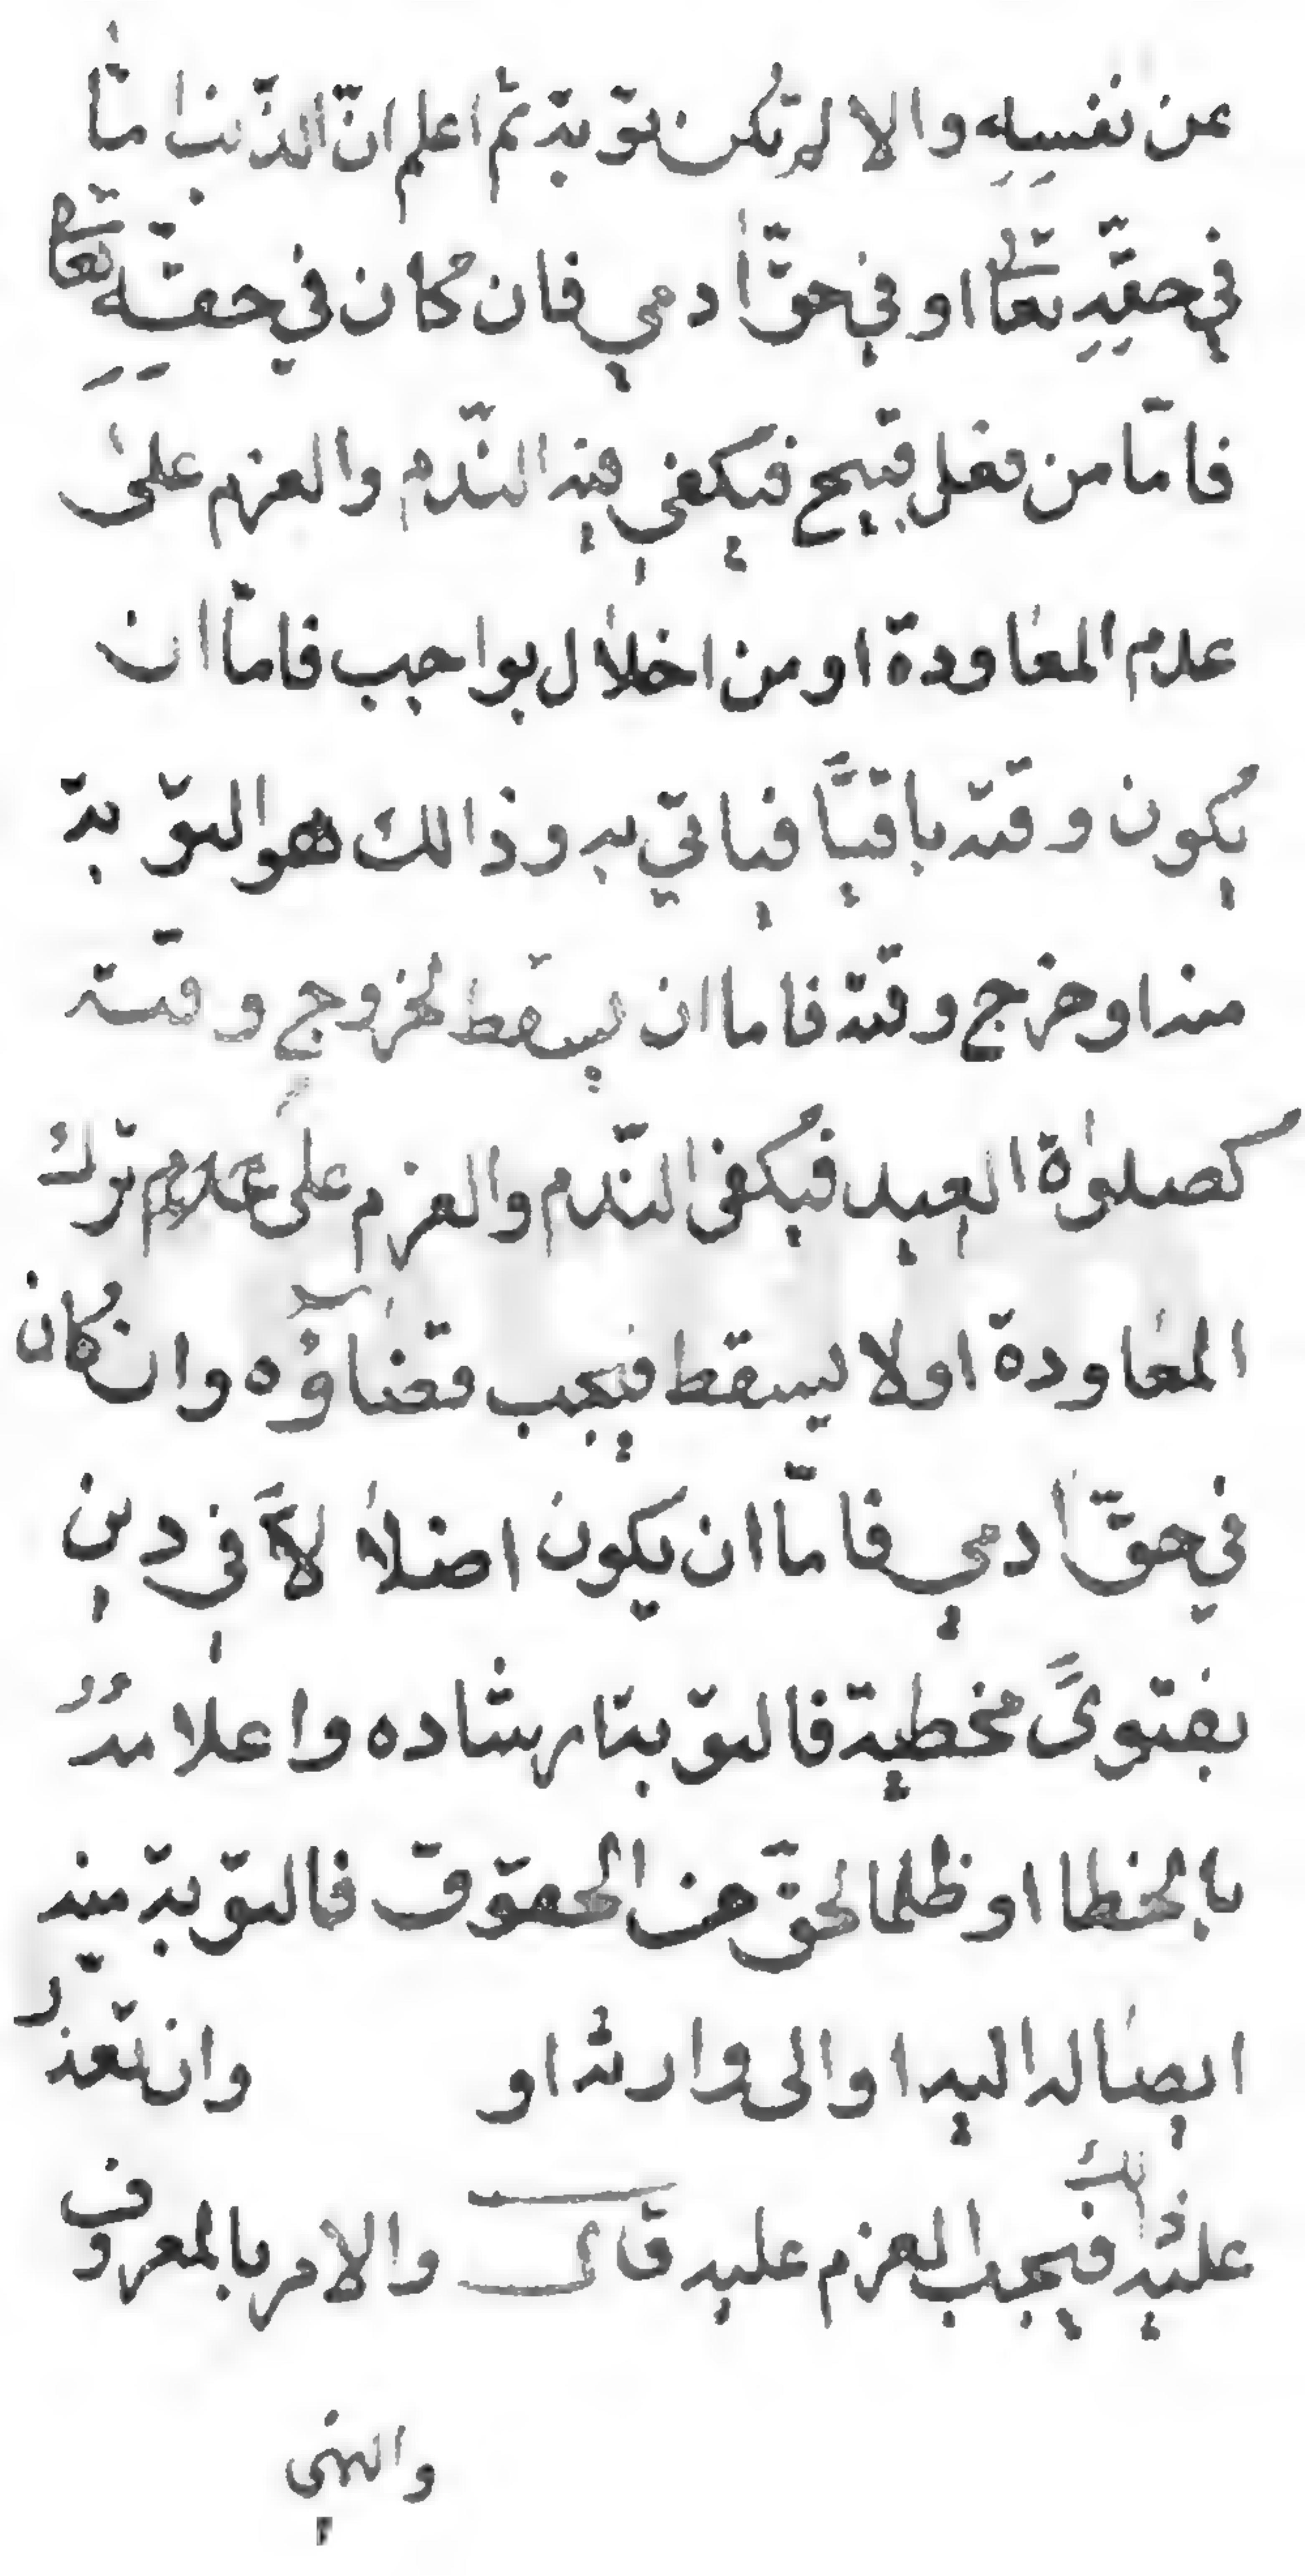 عن نفسِه والا لم تكن توبة ثم اعلم انّ الذّنب امّا
في حقّهِ تعالى او في حقّ ادمي فان كان في حقّهِ تعالى
فامّا من فعل قبيح فيكفي فيه النّدم والعزم على
عدم المعاودة او من اخلال بواجب فامّا ان
يكون وقته باقيًا فياتي به وذالك هو التوبة
منه او خرج وقته فاما ان يسقط لخروج وقته
كصلوٰة العيد فيكفى النّدم والعزم على عدم ترك
المعاودة او لا يسقط فيجب قضاؤه وان كان
في حقّ ادمي فامّا ان يكون اضلالاً في دين
بفتوىً مخطية فالتوبة ارشاده واعلامهُ
بالخطا او ظلما لحقّ من الحقوق فالتوبة منه
ايصاله اليه او الى وارثه او وان تعذر
عليه ذلك فيجب العزم عليه قال والامر بالمعروف
والنهي